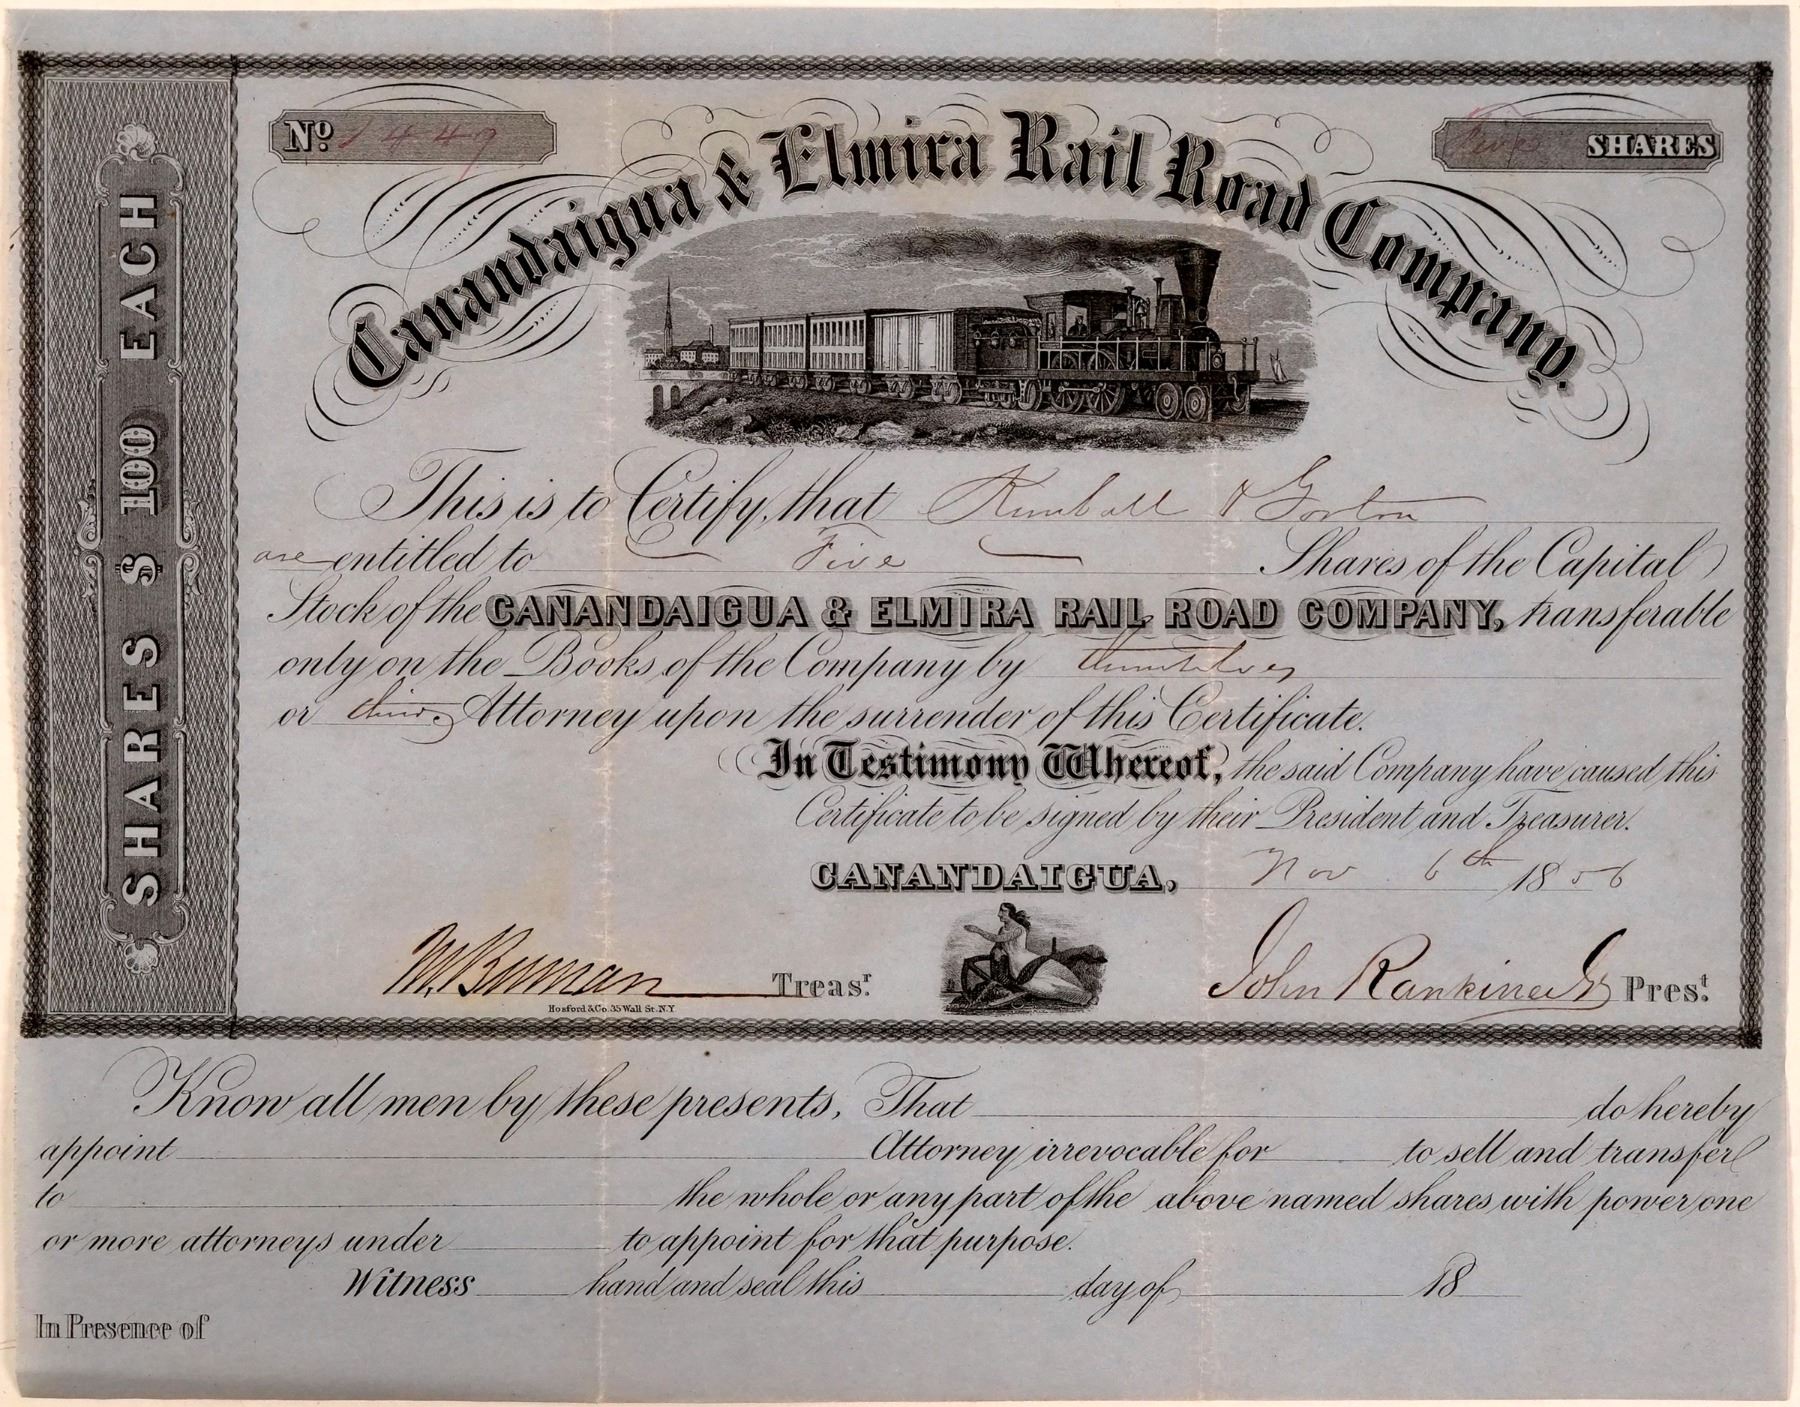 No. 1449
Five SHARES
Canandaigua & Elmira Rail Road Company.
SHARES $100 EACH
This is to Certify, that Kimball & Gorton
are entitled to Five Shares of the Capital
Stock of the CANANDAIGUA & ELMIRA RAIL ROAD COMPANY, transferable
only on the Books of the Company by themselves
or their Attorney upon the surrender of this Certificate.
In Testimony Whereof, the said Company have caused this
Certificate to be signed by their President and Treasurer.
CANANDAIGUA, Nov 6th 1856
Treasr.
John Rankine Prest.
Hosford & Co. 35 Wall St. N.Y
Know all men by these presents, That do hereby
appoint Attorney irrevocable for to sell and transfer
to the whole or any part of the above named shares with power one
or more attorneys under to appoint for that purpose.
Witness hand and seal this day of 18
In Presence of